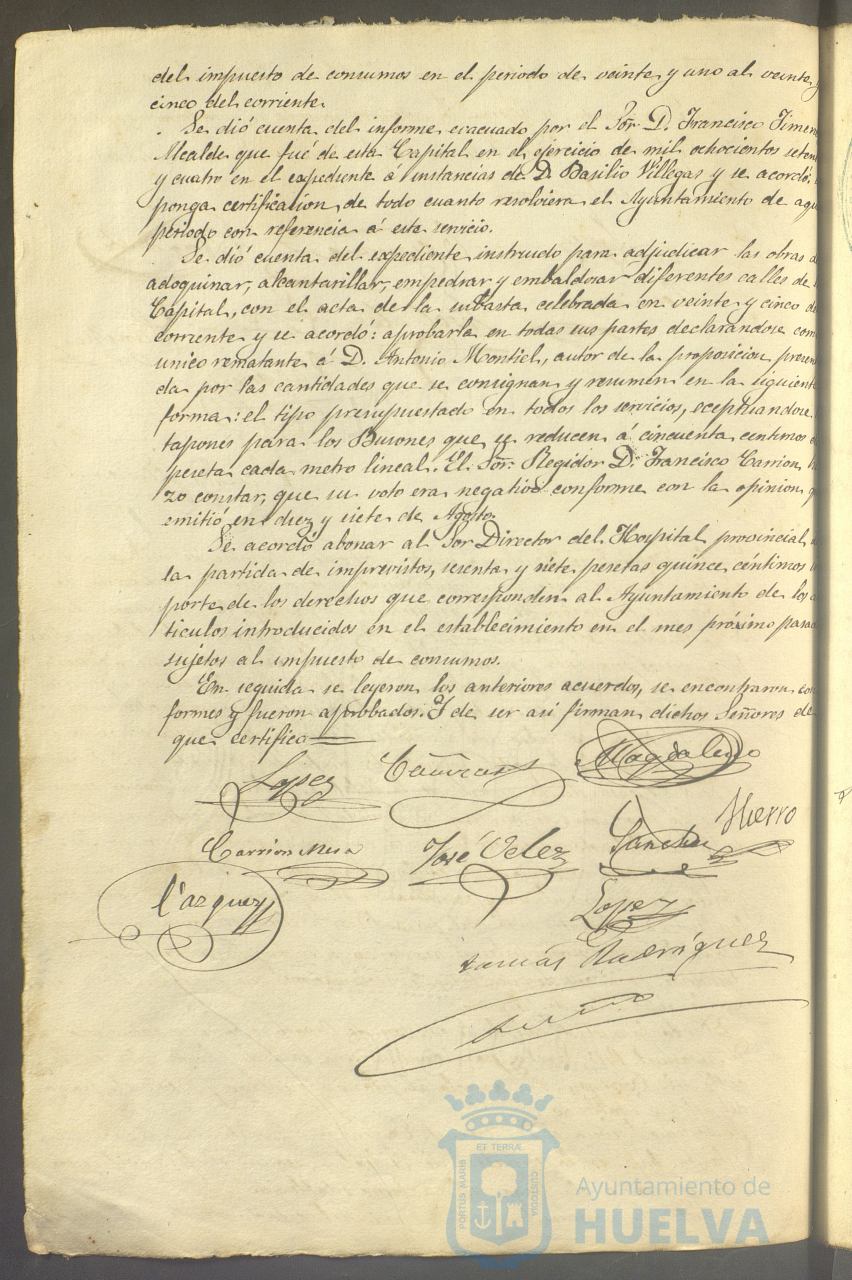 del impuesto de consumos en el periodo de veinte y uno al veinte y
cinco del corriente.
Se dió cuenta del informe evacuado por el Sõr D. Francisco Jimen
Alcalde que fué de esta Capital en el ejercicio de mil ochocientos seten
y cuatro en el expediente á instancias de D. Basilio Villegas y se acordó:
ponga certificacion de todo cuanto resolviera el Ayuntamiento de aqu
periodo con referencia á este servicio.
Se dió cuenta del expediente instruido para adjudicar las obras d
adoquinar, alcantarillar, empedrar y embaldosar diferentes calles de
Capital, con el acta de la subasta celebrada en veinte y cinco d
corriente y se acordó: aprobarla en todas sus partes declarandose com
unico rematante á D. Antonio Montiel, autor de la proposicion presen
da por las cantidades que se consignan y resumen en la siguient
forma: el tipo presupuestado en todos los servicios, eceptuandose
tapones para los Busones que se reducen á cincuenta centimos d
peseta cada metro lineal. El Sõr. Regidor D. Francisco Carrion hi
zo constar, que su voto era negativo conforme con la opinion q
emitió en diez y siete de Agosto.
Se acordó abonar al Sor Director del Hospital provincial
la partida de imprevistos, sesenta y siete pesetas quince céntimos
porte de los derechos que corresponden al Ayuntamiento de los a
ticulos introducidos en el establecimiento en el mes próximo pasad
sujetos al impuesto de consumos.
En seguida se leyeron los anteriores acuerdos, se encontraron con
formes y fueron aprobados. Y de ser asi firman dichos Señores de
que certifico
Lopez Magdaleno
Hierro
Carrion Mesa José Velez Sanchez
Vazquez
Lopez
Tomás Rodríguez
PORTUS MARIS ET TERRÆ CUSTODIA
Ayuntamiento de
HUELVA